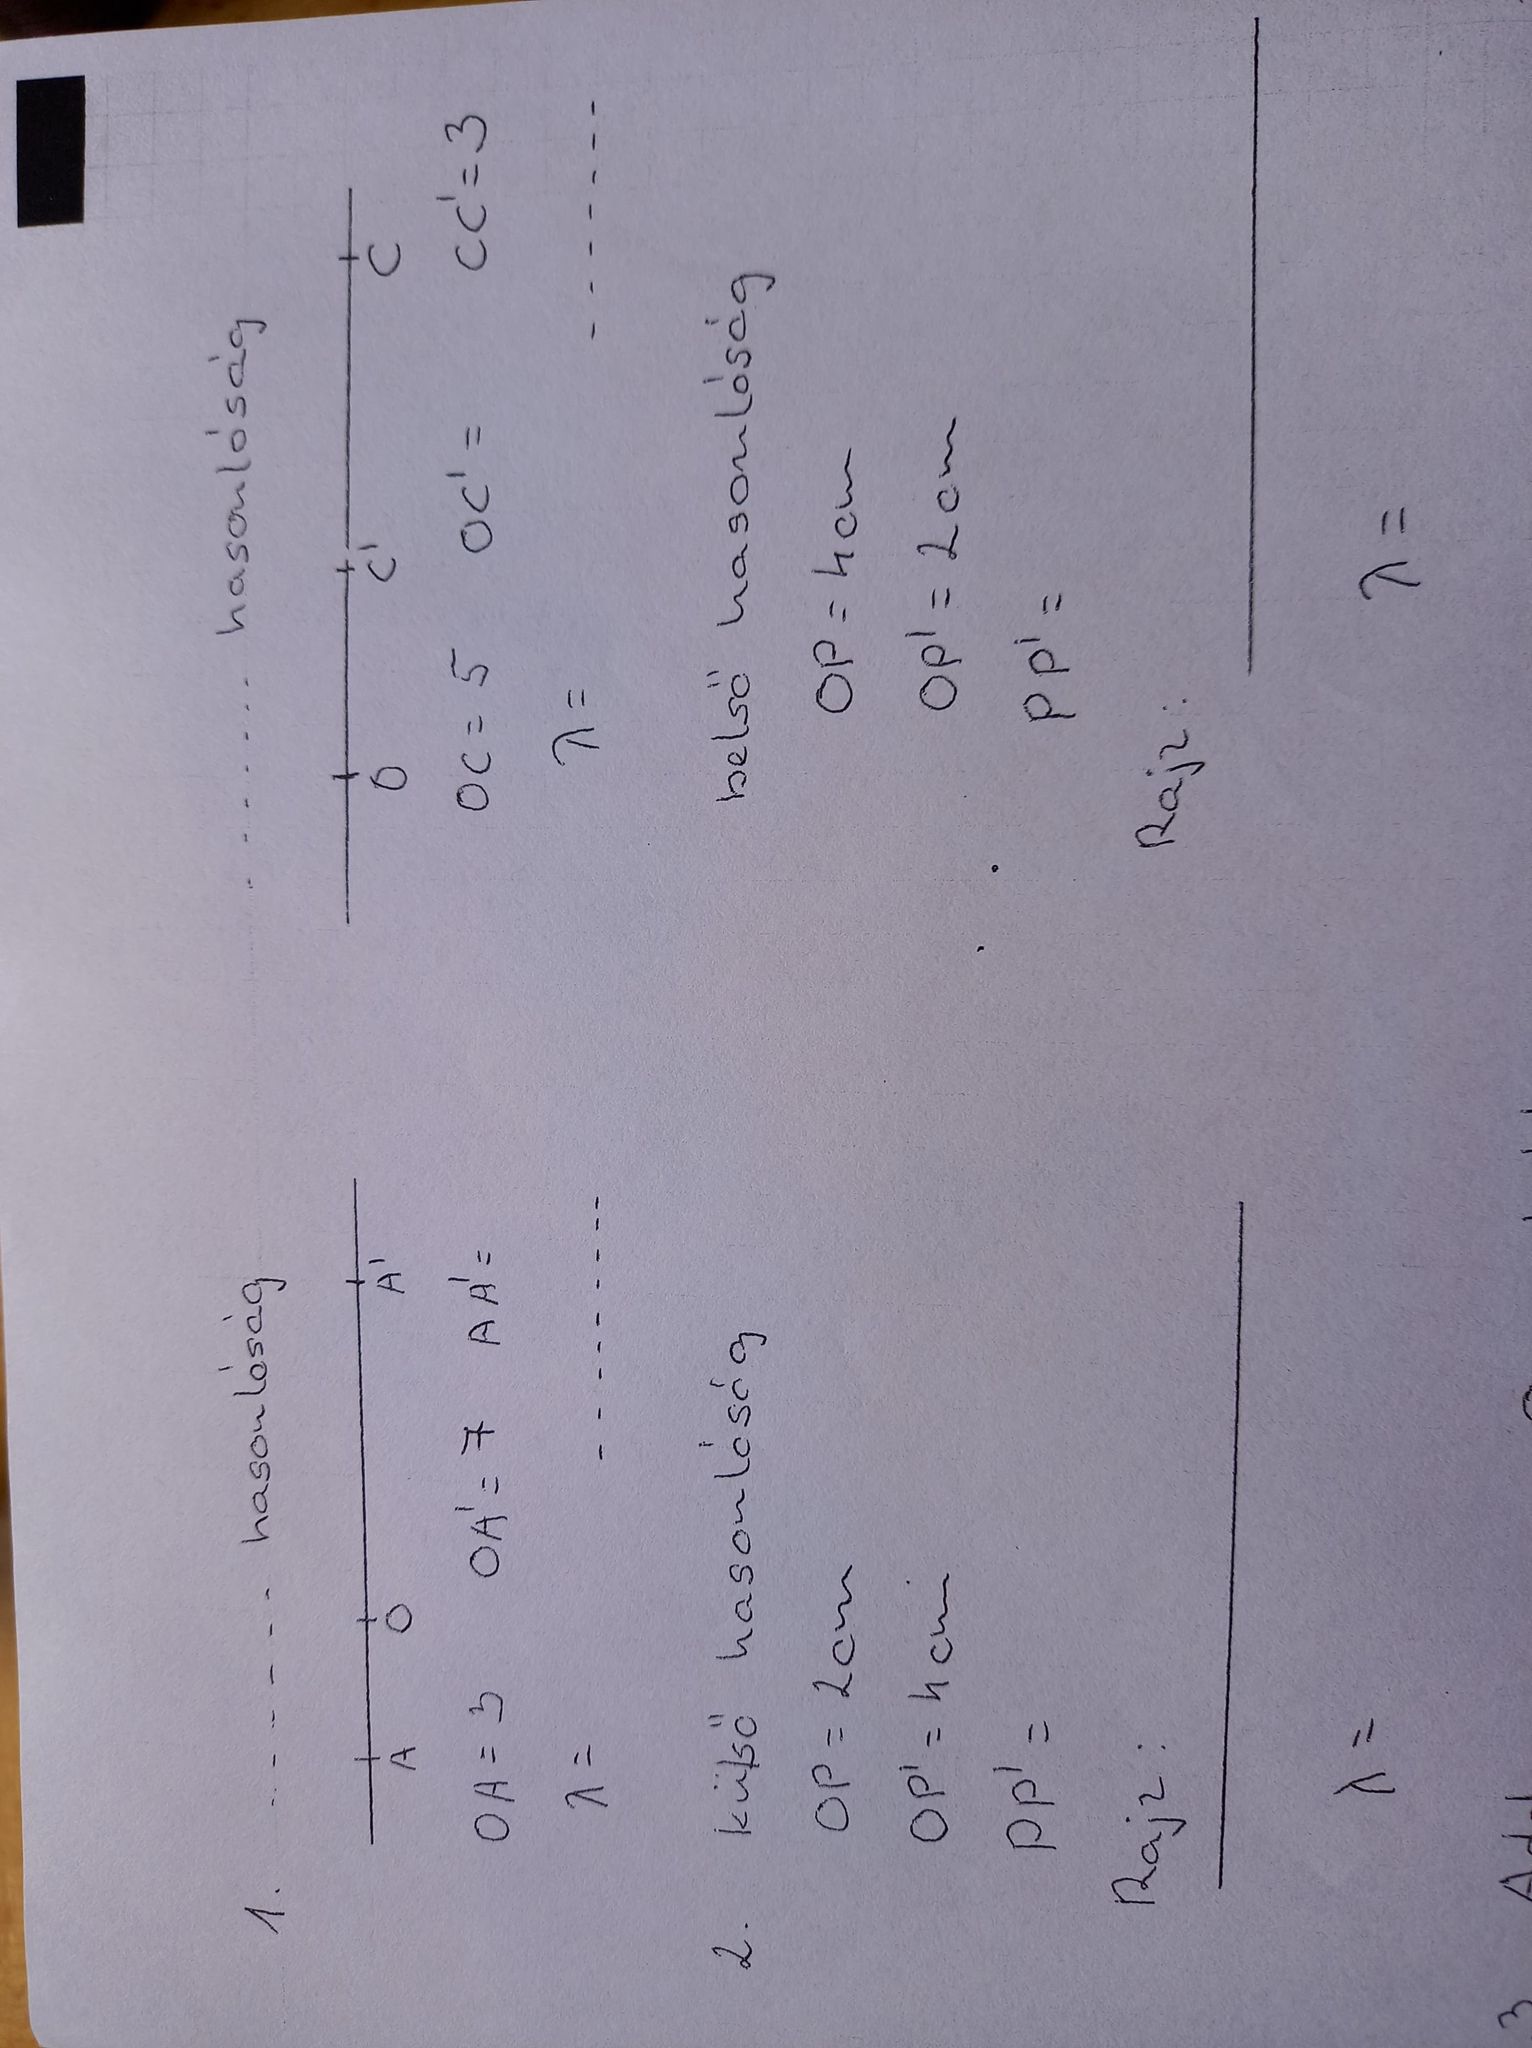 1. ........ hasonlóság
A O A'
OA = 3 OA' = 7 AA' =
λ = ---------
........ hasonlóság
O C' C
OC = 5 OC' = CC' = 3
λ = --------
2. külső hasonlóság
OP = 2cm
OP' = 4cm
PP' =
Rajz:
λ =
belső hasonlóság
OP = 4cm
OP' = 2cm
PP' =
Rajz:
λ =
3.